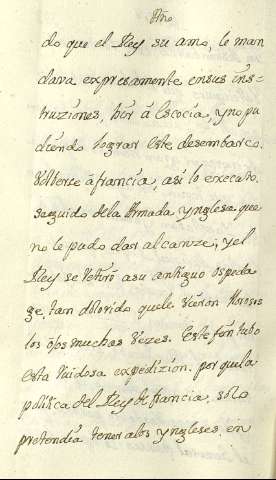 Año
do que el Rey su amo, le man
dava expresamente ensus ins=
truziones, hir á Escocia, yno pu
diendo lograr este desembarco.
Volverse á francia, asi lo executó.
seguido dela Armada ynglesa que
no le pudo dar alcanze, y el
Rey se retiró asu antiguo ospeda
ge, tan dolorido quele vieron llorosos
los ojos muchas vezes. Este fin tubo
esta ruidosa expedizion, por quela
politica del Rey de francia, solo
pretendia tener alos yngleses, en